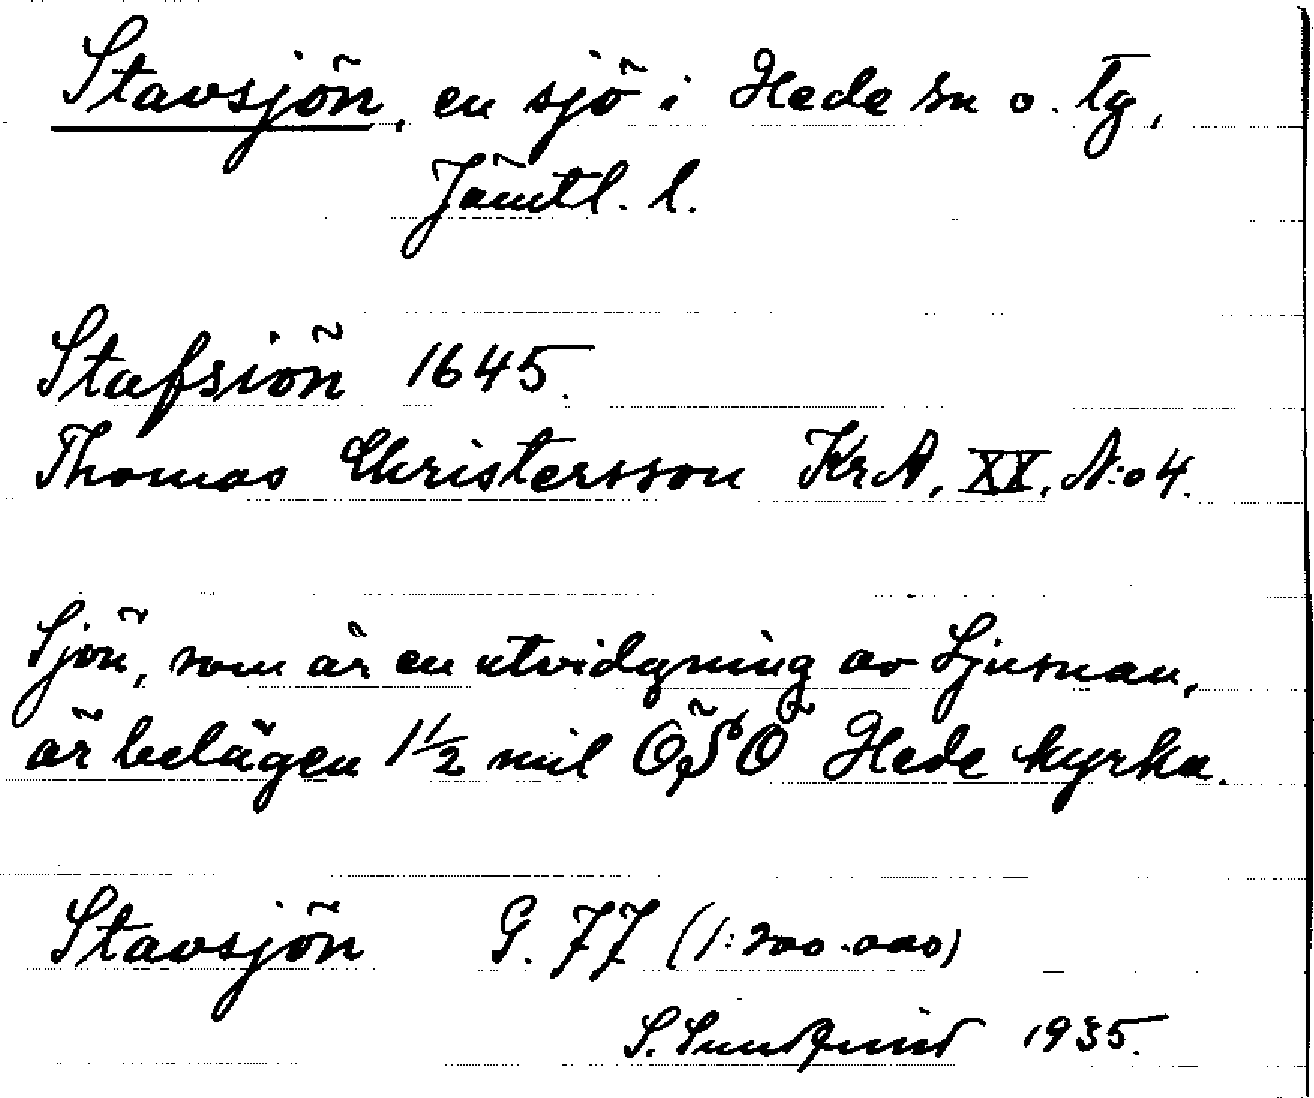 Stavsjön, en sjö i Hede sn o. tg,
Jämtl. l.
Stafsiön 1645.
Thomas Christersson KrA, XX, N:o 4.
Sjön, som är en utvidgning av Ljusnan,
är belägen 1 1/2 mil ÖSÖ Hede kyrka.
Stavsjön G. 77 (1:200.000)
S. Sundqvist 1935.